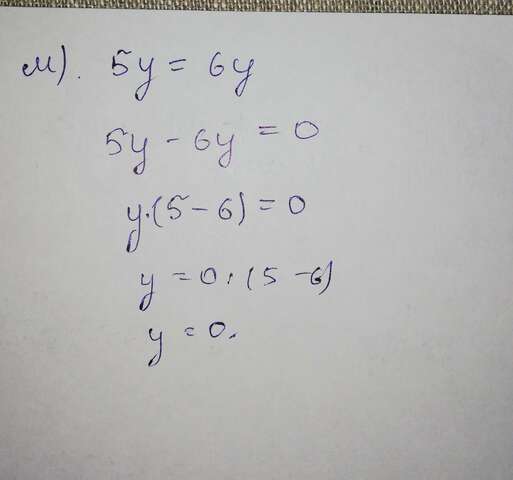 м). 5y = 6y
5y - 6y = 0
y·(5 - 6) = 0
y = 0 : (5 - 6)
y = 0.